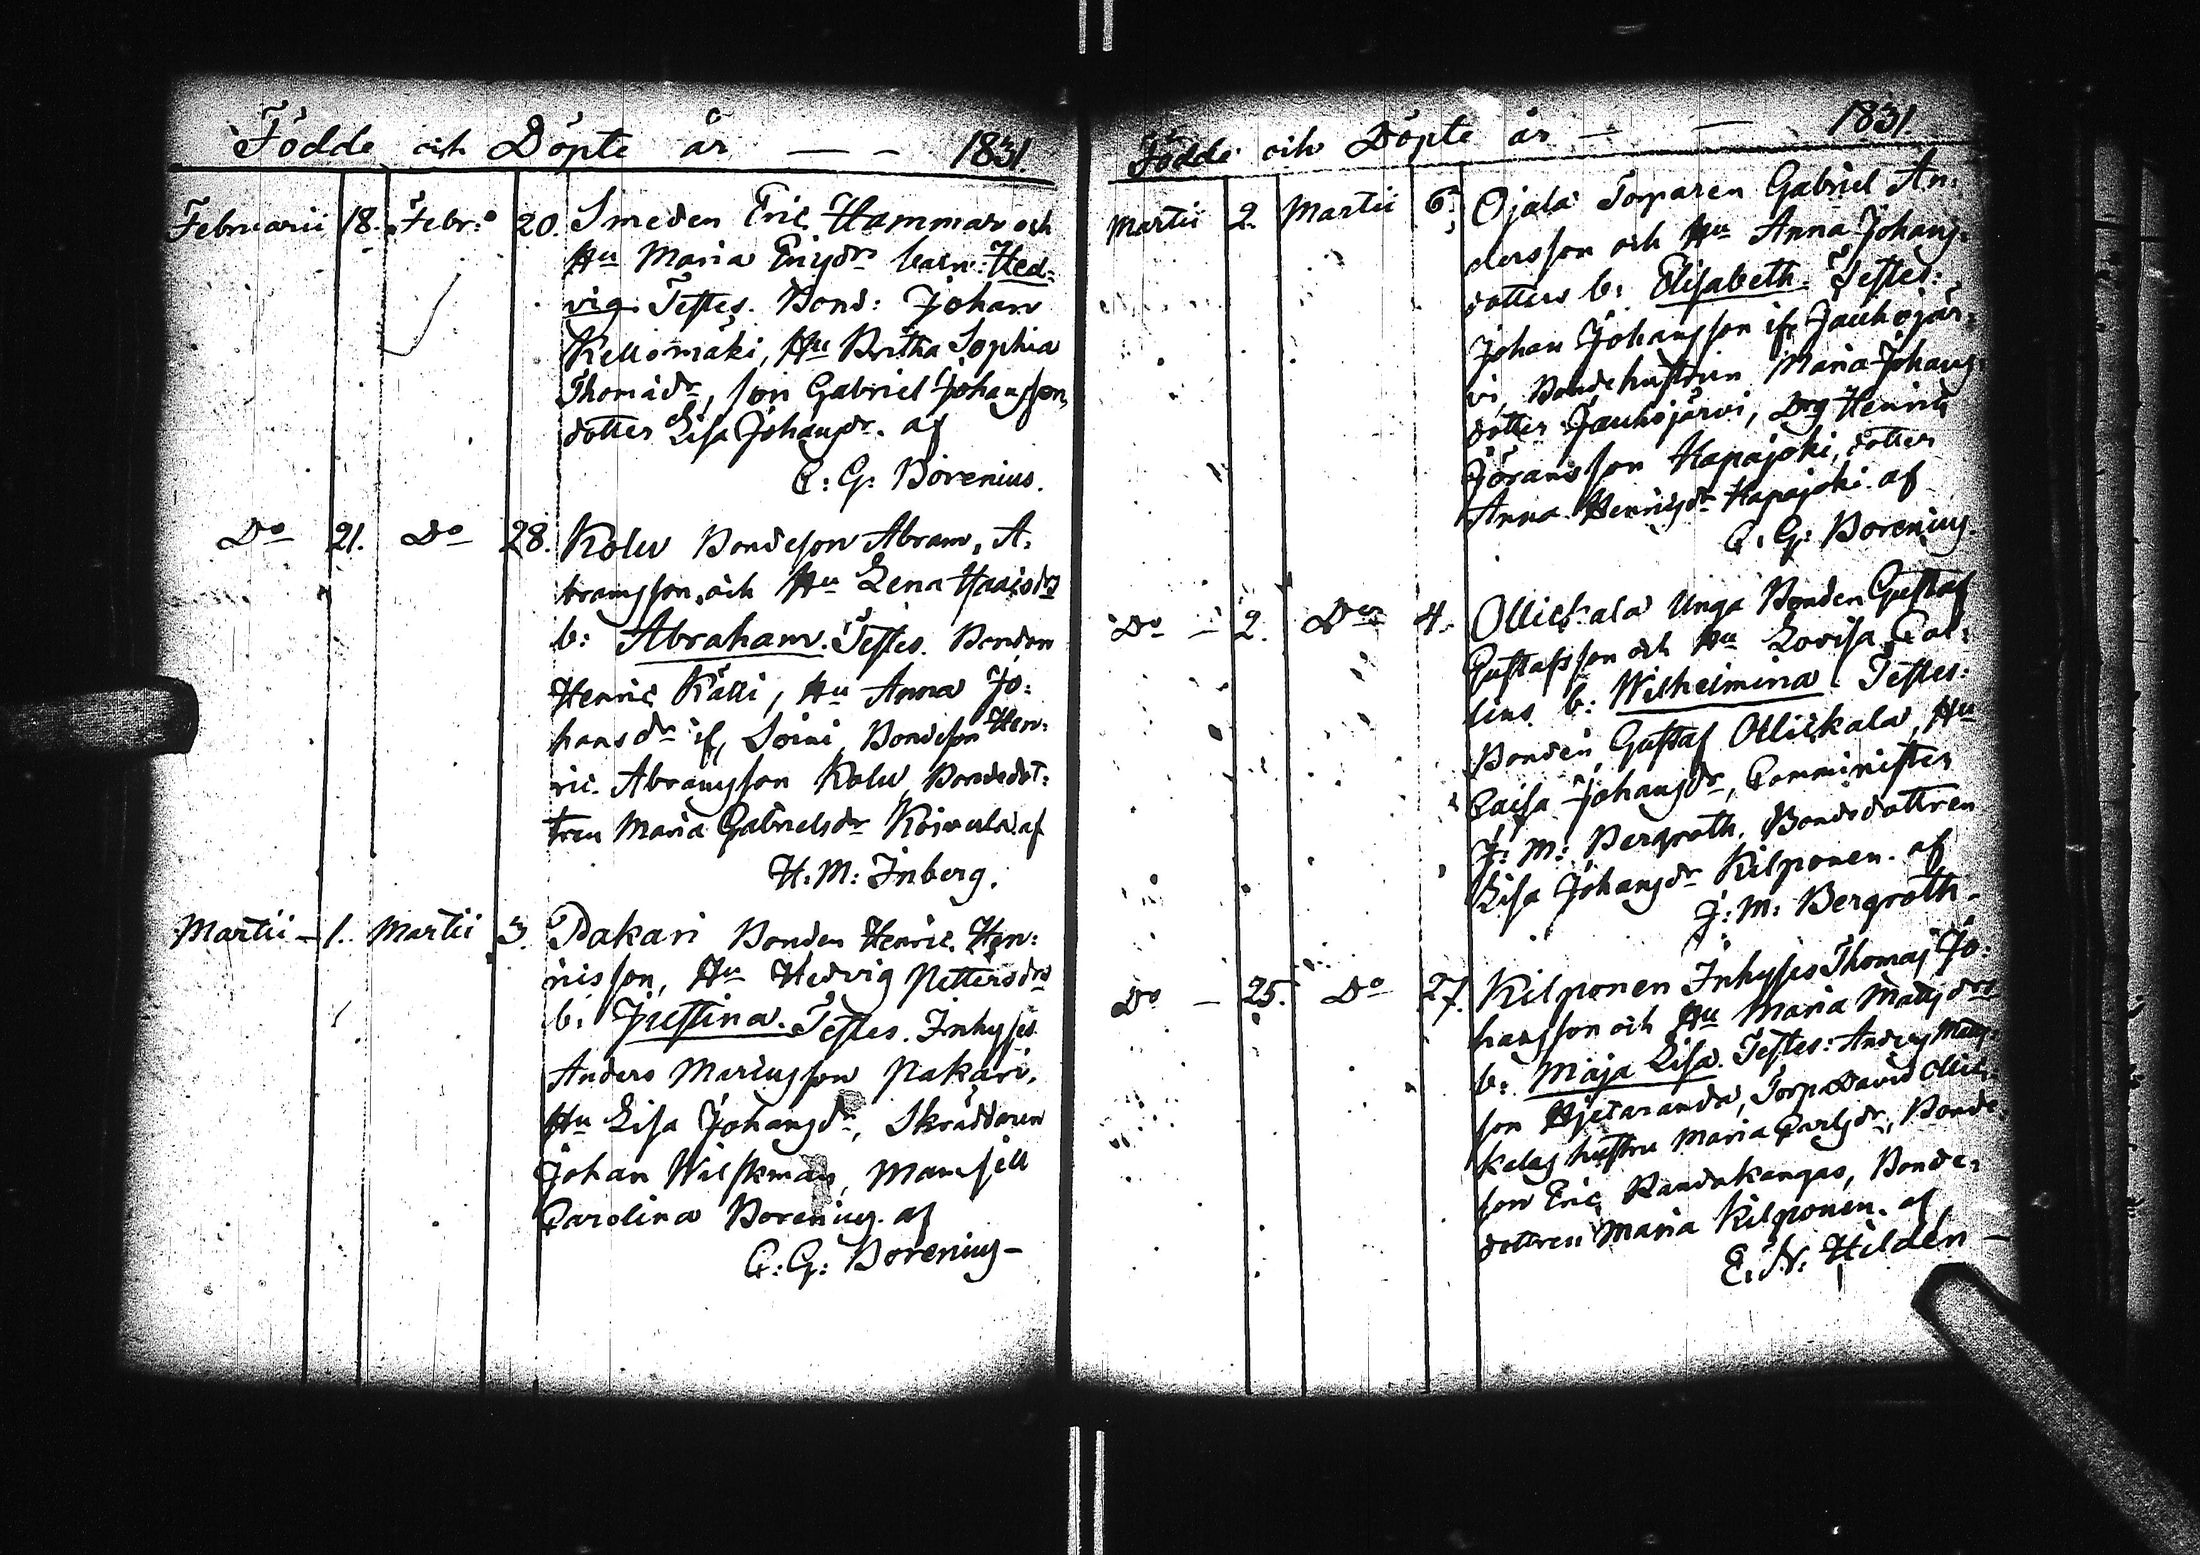 Födde och Döpte år — – 1831.
Februarii 18. Febr: 20. Smeden Eric Hammar och
Hu Maria Ericsdr barn: Hed:
vig. Testes. Bond: Johan
Kellomäki, Hu Britha Sophia
Thomædr, son Gabriel Johansson,
dotter Lisa Johansdr. af
C: G: Borenius.
Do 21. Do 28. Kolu Bondeson Abram, A:
bramsson, och Hu Lena
b: Abraham. Testes. Bonden
Henric Kätti, Hu Anna Jo:
hansdr if, Soini, Bondeson Hen:
ric Abramsson Kolu, Bondedot:
tren Maria Gabrielsdr af
H: M: Inberg.
Martii – 1. Martii 3. Pakari Bonden Henric Hen:
ricsson, Hu Hedvig Pettersdrs
b: Justina. Testes. Inhyses
Anders Pakari,
Hu Lisa Johansdr, Skräddaren
Johan Wilskman, Mamsell
Carolina Borenius. af
C: G: Borenius –
Födde och Döpte år — — 1831.
Martii 2. Martii 6. Ojala Torparen Gabriel An:
dersson och Hu Anna Johans:
dotters b: Elisabeth. Testes:
Johan Johansson if, Jauhojär:
vi, Bondehustrun Maria Johans:
dotter Jauhojärvi, Drg Henric
Göransson Hapajoki, dotter
Anna Henricsdr Hapajoki. af
C: G: Borenius.
Do – 2. Do 4. Ollickala Unga Bonden Gustaf
Gustafsson och Hu Lovisa Col:
lins b: Wilhelmina. Testes:
Bonden Gustaf Ollickala, Hu
Caisa Johansdr, Comminister
J: M: Bergroth, Bondedottren
Lisa Johansdr Kilponen. af
J: M: Bergroth –
Do – 25. Do 27. Kilponen Inhyses Thomas Jo:
hansson och Hu Maria Matsdrs
b: Maja Lisa. Testes: Anders Mats:
son Hjetaranda, Torp: David
kelas hustru Maria Carlsdr, Bonde:
son Eric Randakangas, Bonde:
dottren Maria Kilponen. af
E: N: Hildén –